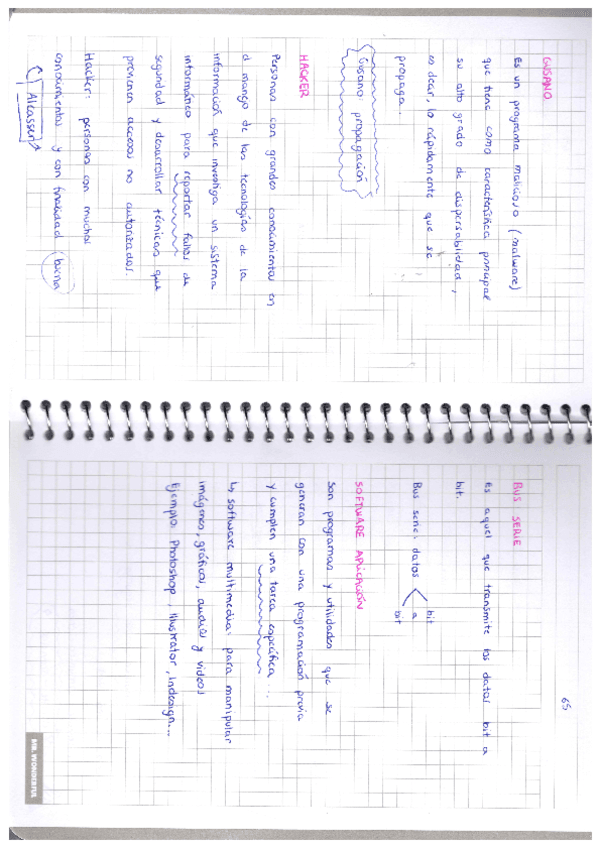 GUSANO
Es un programa malicioso (malware)
que tiene como característica principal
su alto grado de dispersabilidad,
es decir, lo rápidamente que se
propaga.
Gusano: propagación
HACKER
Personas con grandes conocimientos en
el manejo de las tecnologías de la
información que investiga un sistema
informático para reportar fallos de
seguridad y desarrollar técnicas que
previenen accesos no autorizados.
Hacker: personas con muchos
conocimientos y con finalidad buena
Alcasser
65
BUS SERIE
Es aquel que transmite los datos bit a
bit.
Bus serie: datos
bit
a
bit
SOFTWARE APLICACIÓN
Son programas y utilidades que se
generan con una programación previa
y cumplen una tarea específica...
↳ software multimedia: para manipular
imágenes, gráficos, audios y videos
Ejemplo: Photoshop, Illustrator, Indesign...
MR. WONDERFUL